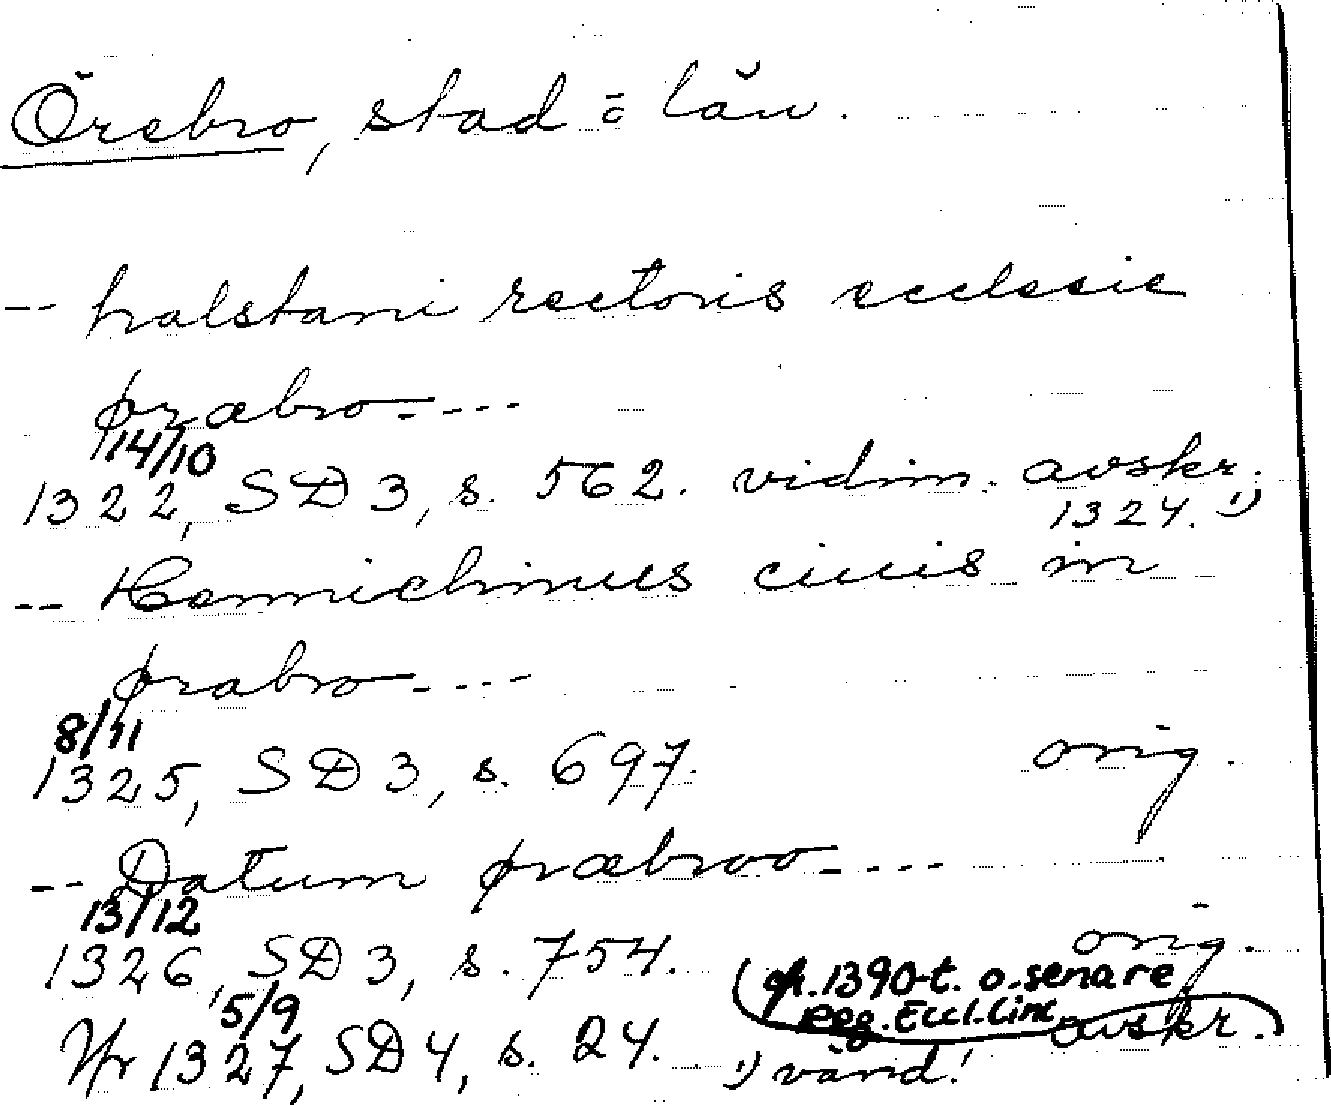 Örebro, stad o län.
-- halstani rectoris ecclesie
øræbro----
14/10
1322, SD 3, s. 562. vidim. avskr.
1324. 1)
-- Hennichinus ciuis in
ørabro----
8/11
1325, SD 3, s. 697. orig.
-- Datum øræbroo----
13/12
1326, SD 3, s. 754. orig.
(fr. 1390-t. o. senare
5/9 reg. Eccl. Linc
Jfr 1327, SD 4, s. 24. avskr.)
1) värd!